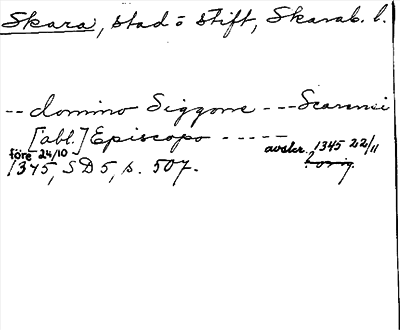 Skara, stad o stift, Skarab. l.
-- domino Siggone --- Scarensi
[abl.] Episcopo -----
före 24/10 avskr. 1345 22/11
1345, SD 5, s. 507. orig.